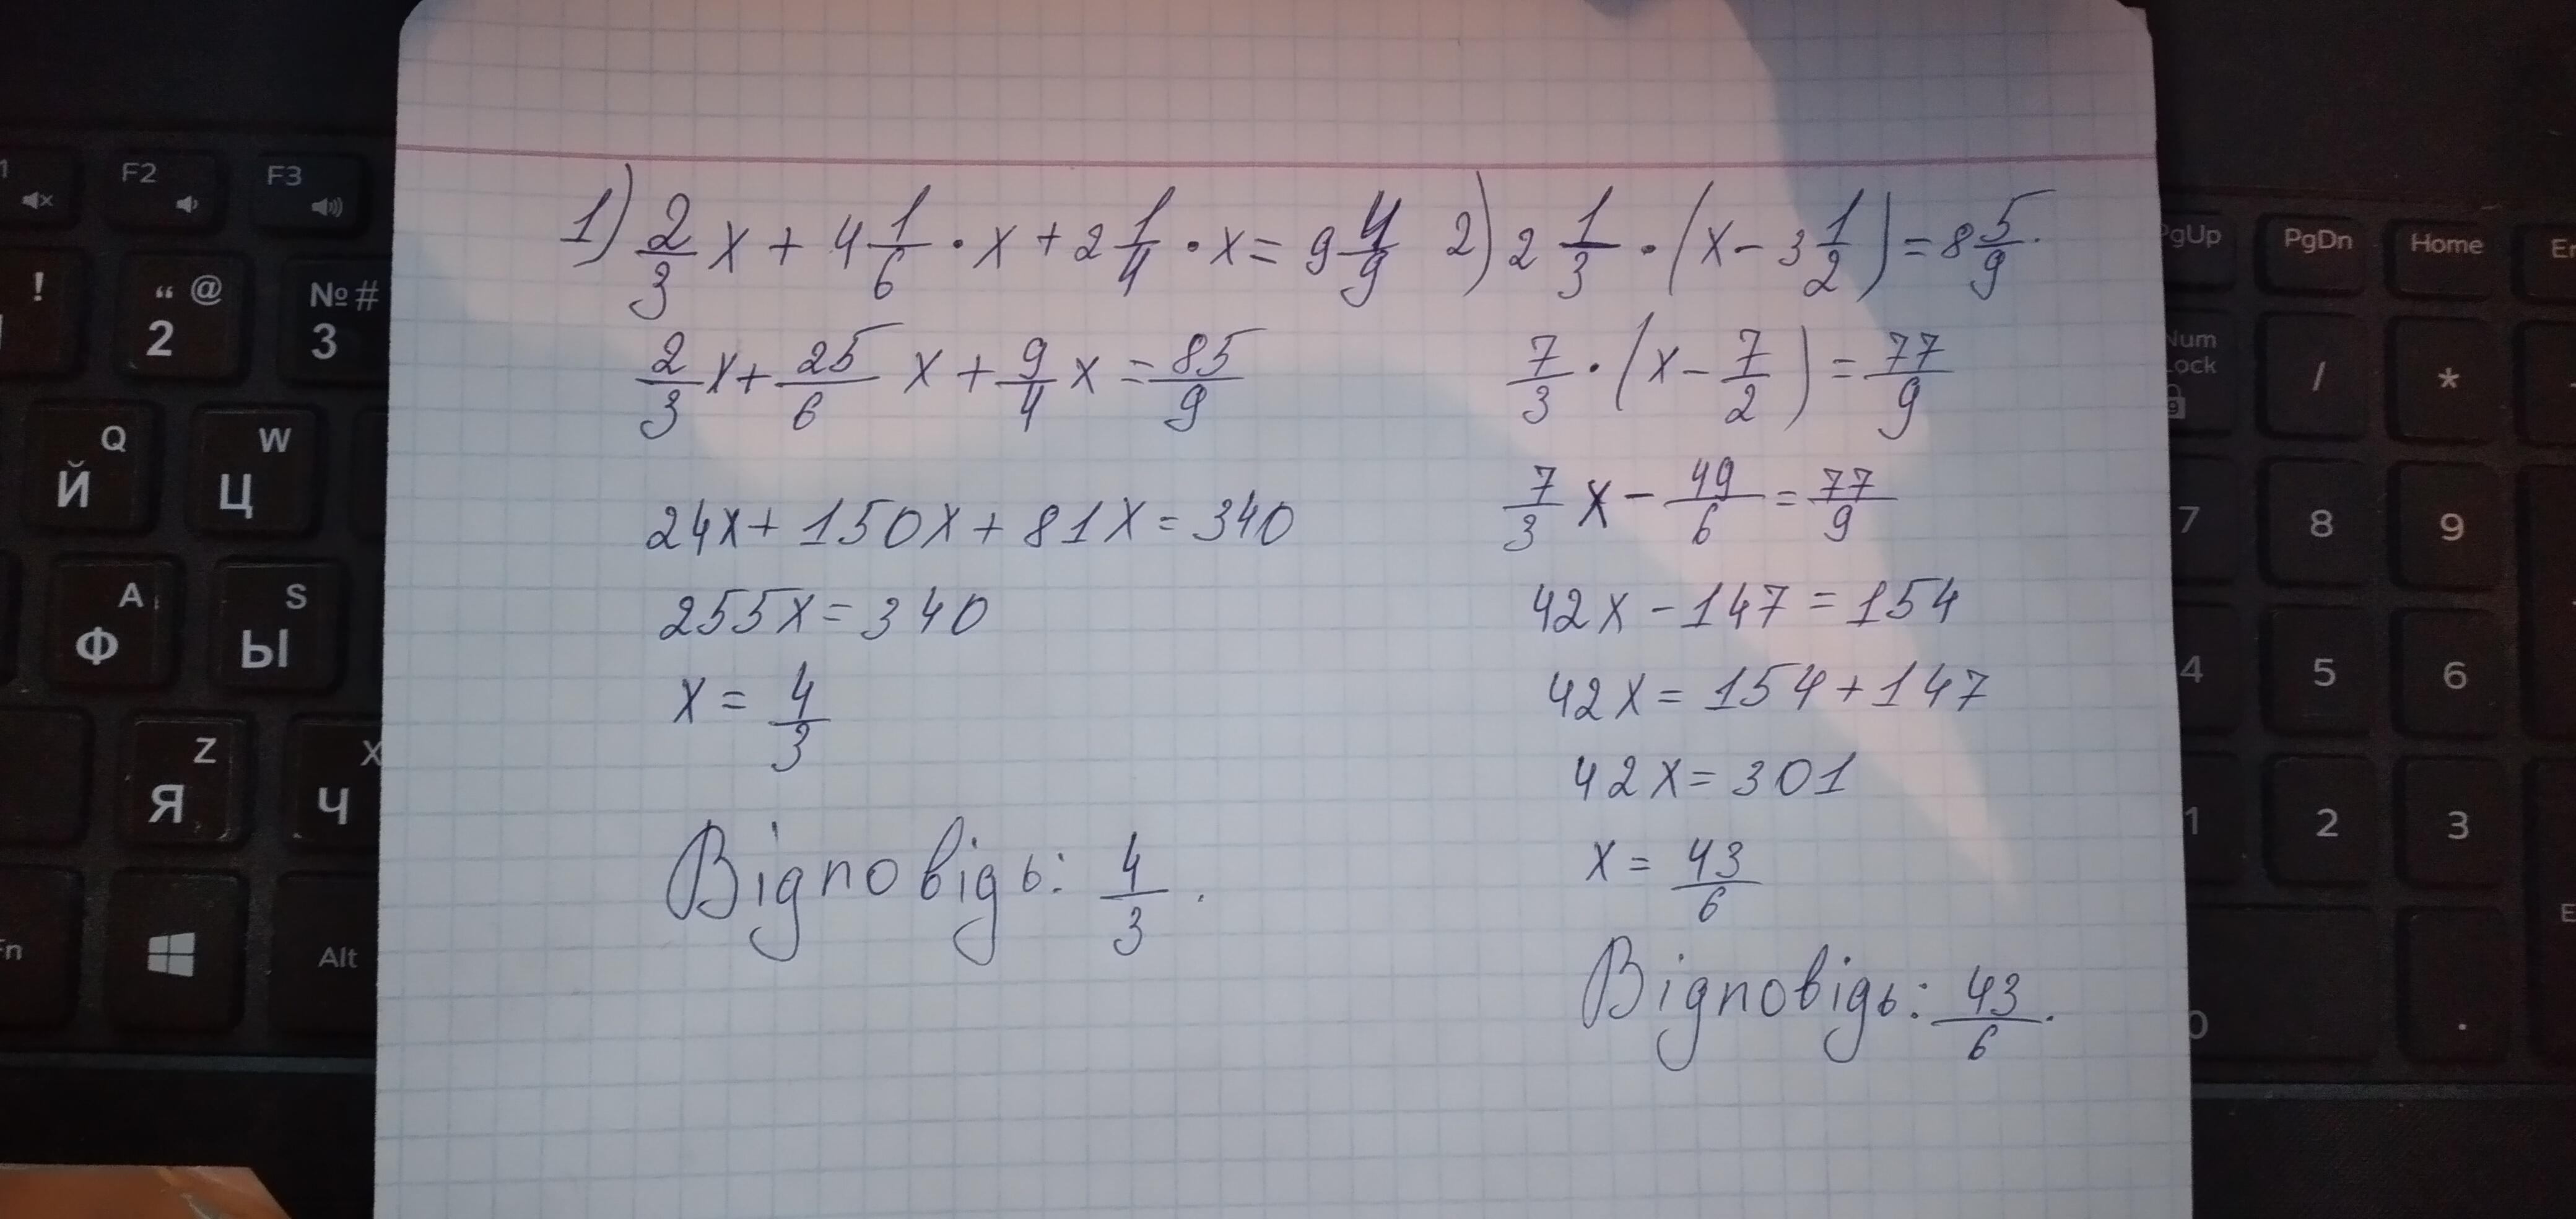 1) 2/3 x + 4 1/6 · x + 2 1/4 · x = 9 4/9
2/3 x + 25/6 x + 9/4 x = 85/9
24x + 150x + 81x = 340
255x = 340
x = 4/3
Відповідь: 4/3.
2) 2 1/3 · (x - 3 1/2) = 8 5/9.
7/3 · (x - 7/2) = 77/9
7/3 x - 49/6 = 77/9
42x - 147 = 154
42x = 154 + 147
42x = 301
x = 43/6
Відповідь: 43/6.
F2
F3
!
“ @
2
№ #
3
Q
Й
W
Ц
A
Ф
S
Ы
Z
Я
X
Ч
Alt
PgUp
PgDn
Home
Num
Lock
/
*
7
8
9
4
5
6
1
2
3
0
.